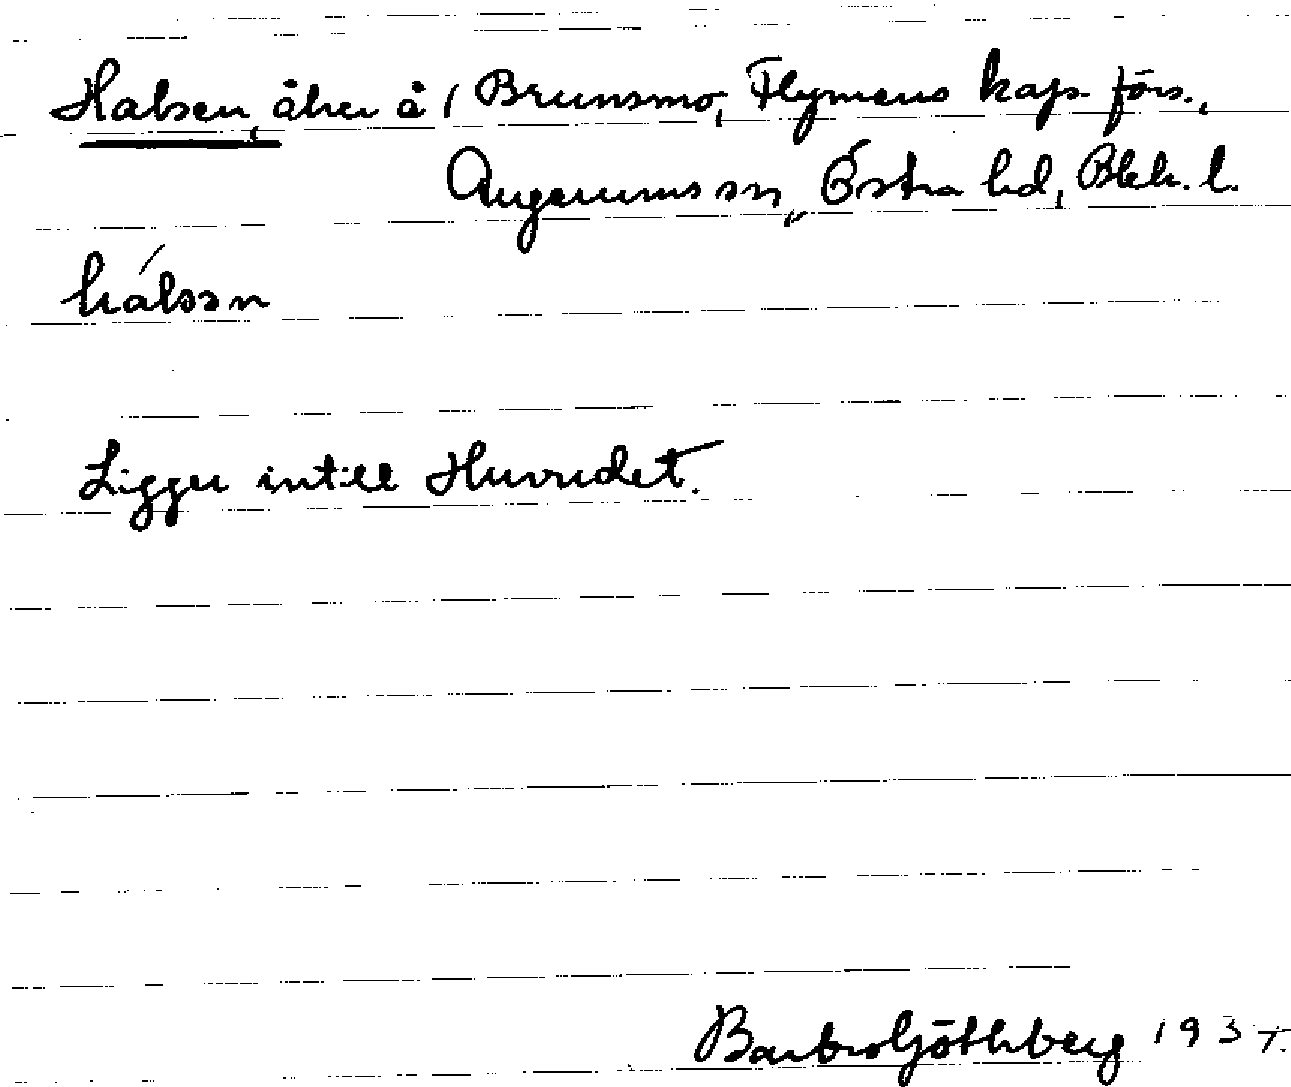 Halsen, åker å / Brunsmo, Flymens kap. förs.,
Augerums sn, Östra hd, Blek. l.
hálsən
Ligger intill Huvudet.
Barbro Göthberg 193